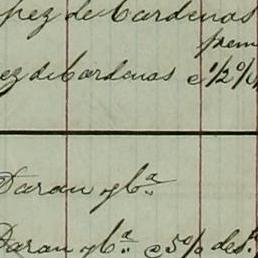 pez de Cardenas
prem
ez de Cardenas @ 1/2 %
Daran y Cª
Daran y Cª @ 5% des.